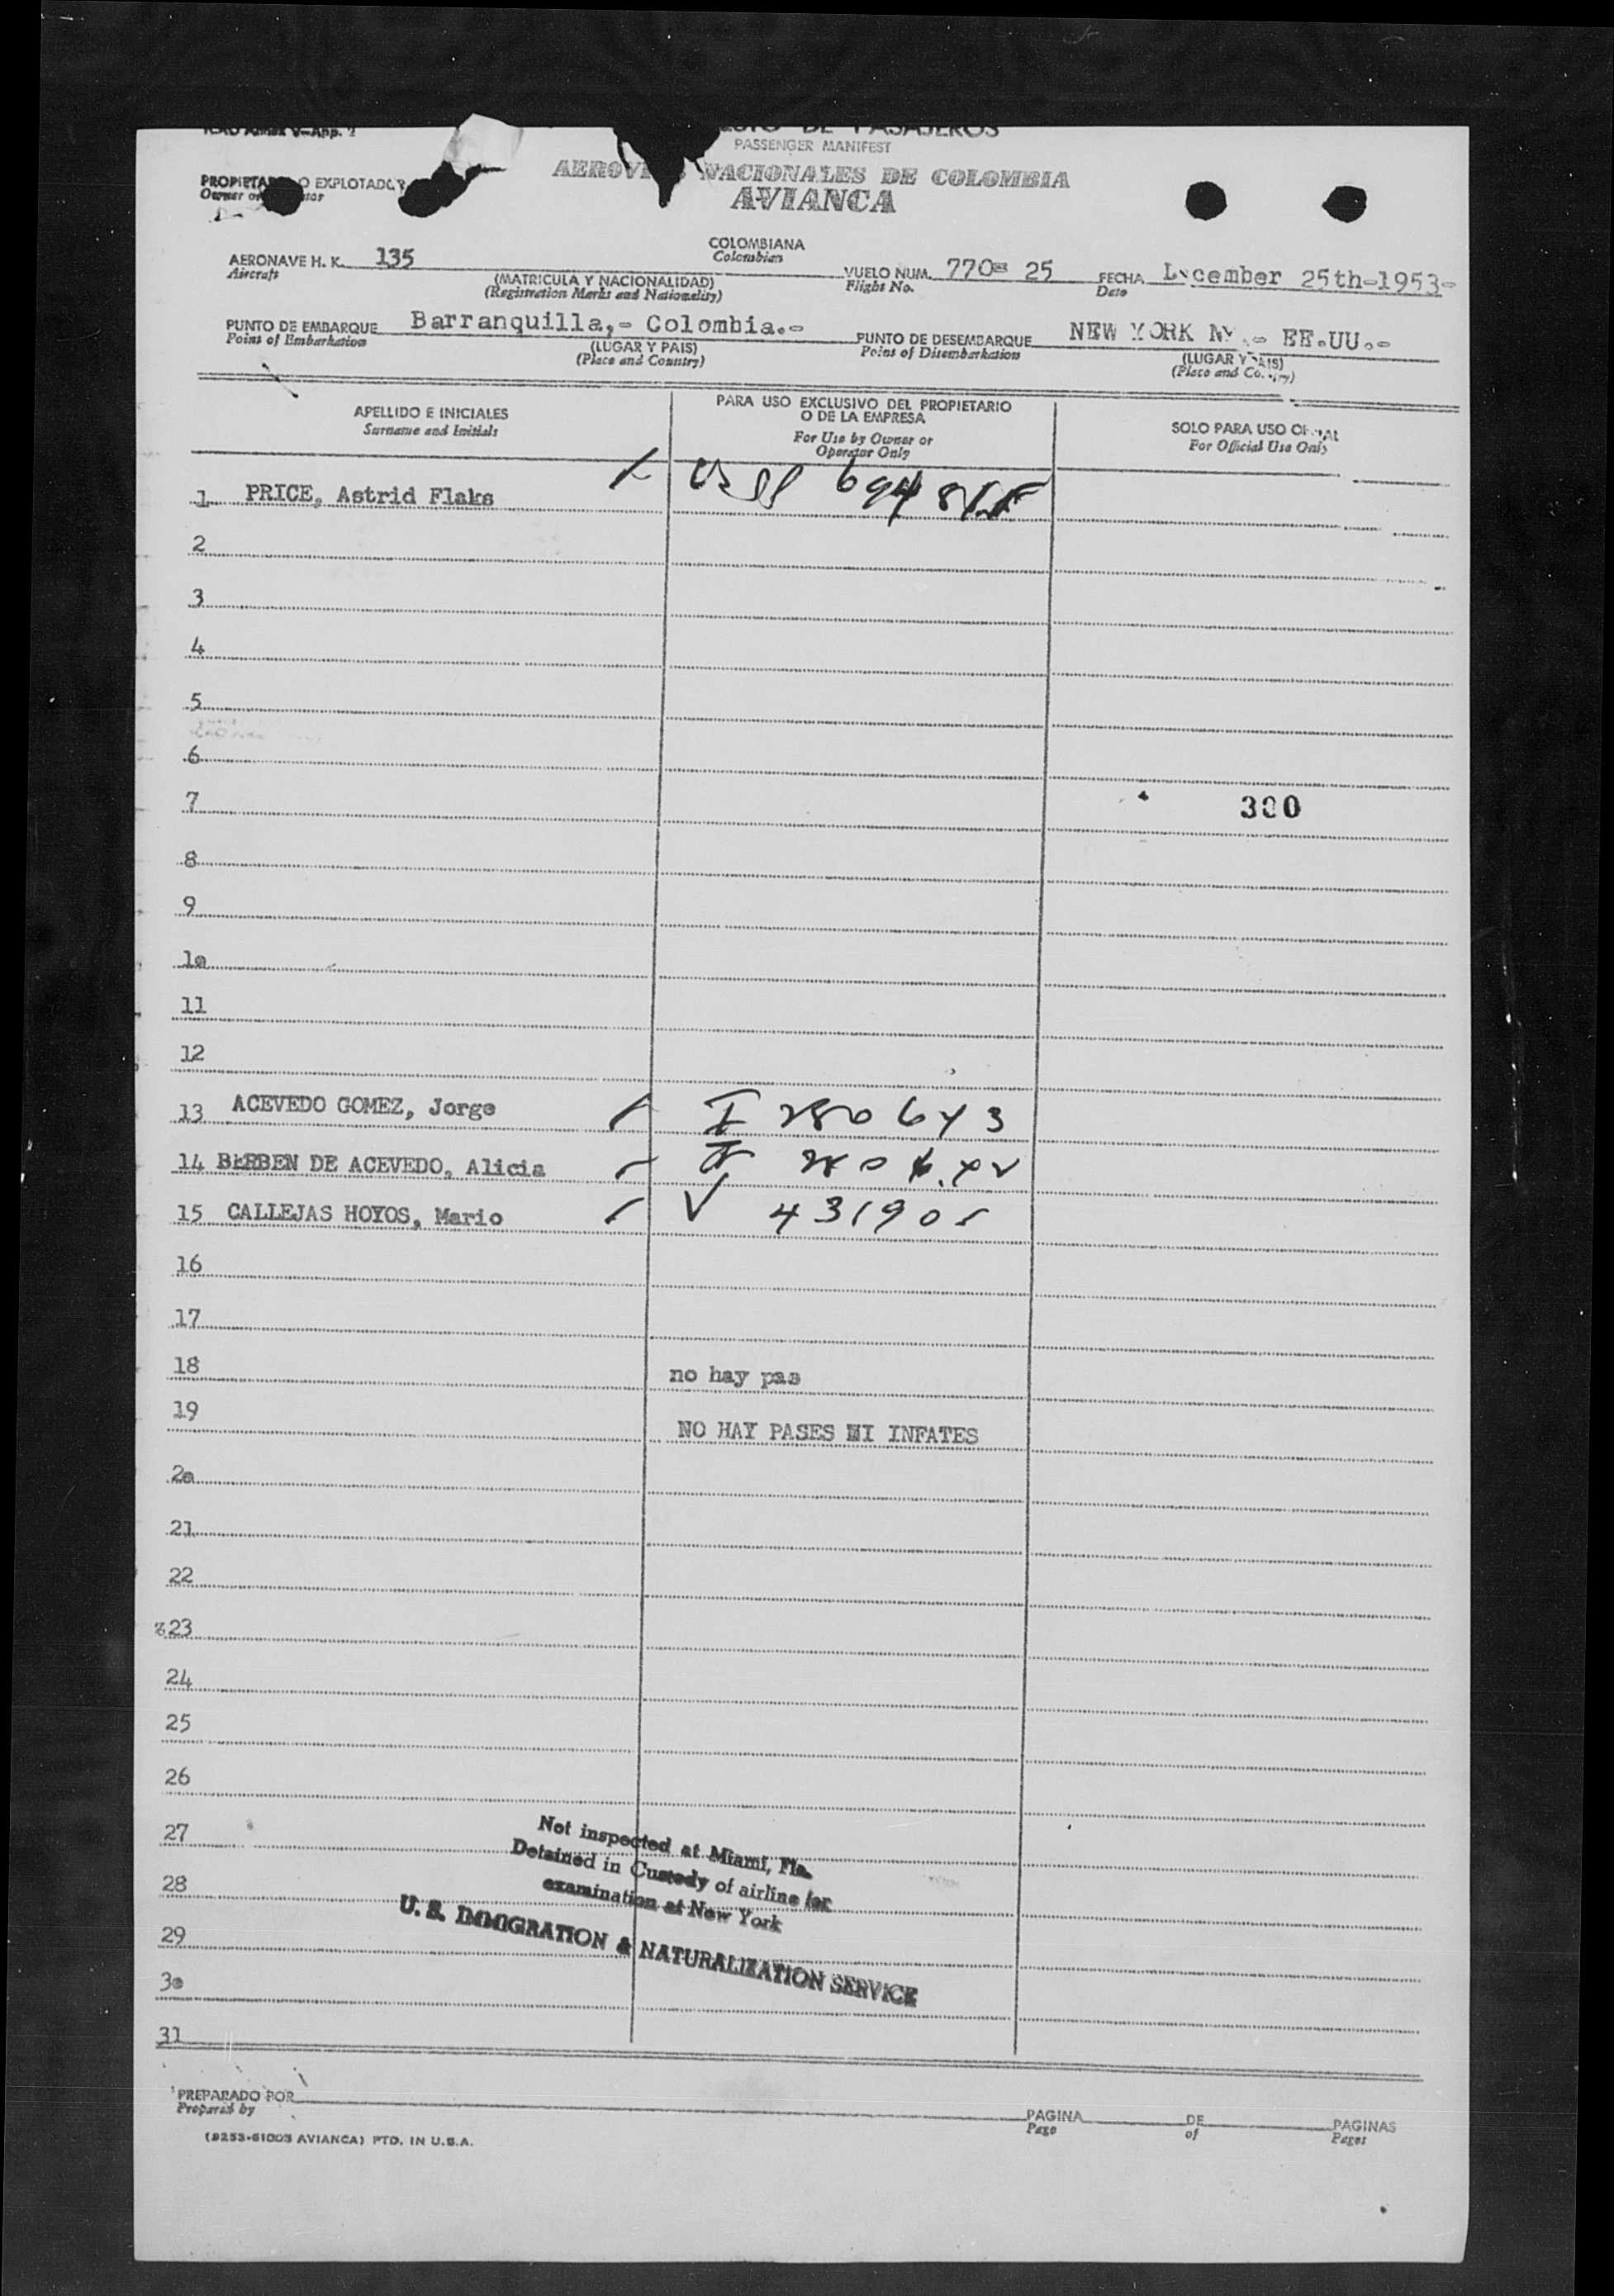 ICAO Annex 9—App. 2
DE PASAJEROS
PASSENGER MANIFEST
NACIONALES DE COLOMBIA
AVIANCA
O EXPLOTADOR
Owner or
AERONAVE H. K. 135
Aircraft
COLOMBIANA
Colombian
(MATRICULA Y NACIONALIDAD)
(Registration Marks and Nationality)
VUELO NUM. 770= 25
Flight No.
FECHA December 25th-1953-
Date
PUNTO DE EMBARQUE Barranquilla,- Colombia.-
Point of Embarkation
(LUGAR Y PAIS)
(Place and Country)
PUNTO DE DESEMBARQUE NEW YORK NY.- EE.UU.-
Point of Disembarkation
(LUGAR Y PAIS)
(Place and Country)
APELLIDO E INICIALES
Surname and Initials
PARA USO EXCLUSIVO DEL PROPIETARIO
O DE LA EMPRESA
For Use by Owner or
Operator Only
SOLO PARA USO OFICIAL
For Official Use Only
1 PRICE, Astrid Flaks
2
3
4
5
6
7 300
8
9
10
11
12
13 ACEVEDO GOMEZ, Jorge I 280643
14 BERBEN DE ACEVEDO, Alicia
15 CALLEJAS HOYOS, Mario V 431905
16
17
18 no hay pas
19 NO HAY PASES NI INFATES
20
21
22
23
24
25
26
27
28
29
30
31
Not inspected at Miami, Fla.
Detained in Custody of airline for
examination at New York
U. S. IMMIGRATION & NATURALIZATION SERVICE
PREPARADO POR
Prepared by
PAGINA DE PAGINAS
Page of Pages
(9253-61003 AVIANCA) PTD. IN U.S.A.